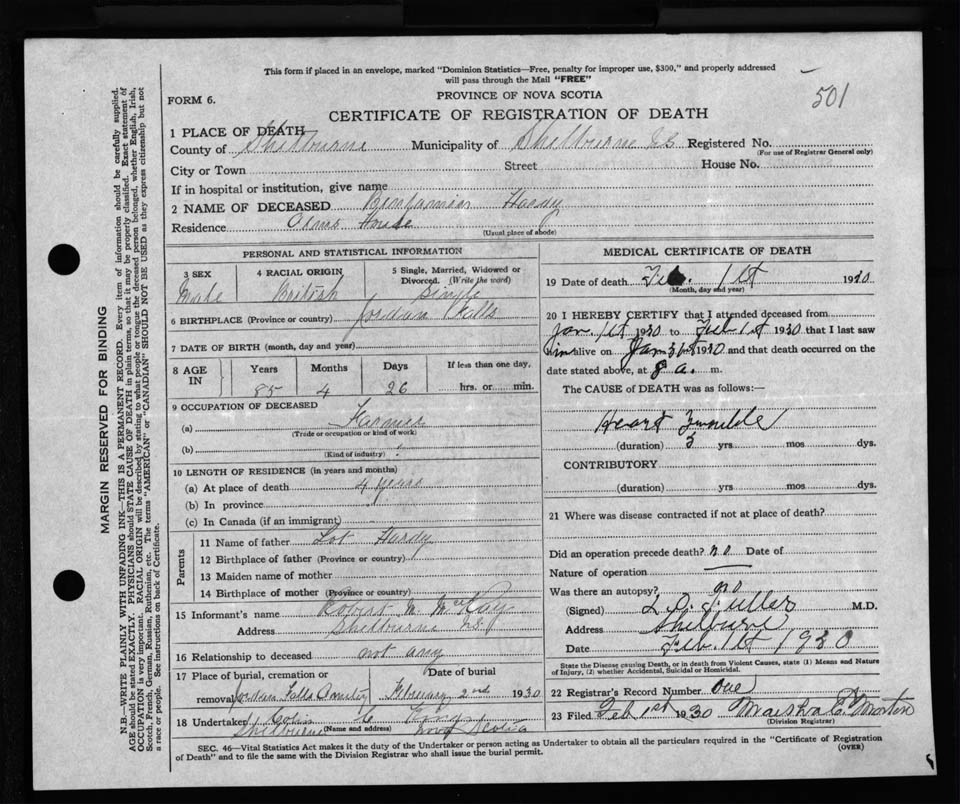 This form if placed in an envelope, marked "Dominion Statistics—Free, penalty for improper use, $300," and properly addressed
will pass through the Mail "FREE"
501
PROVINCE OF NOVA SCOTIA
FORM 6.
CERTIFICATE OF REGISTRATION OF DEATH
1 PLACE OF DEATH
County of Shelbourne Municipality of Shelbourne Registered No.
(For use of Registrar General only)
City or Town Street House No.
If in hospital or institution, give name
2 NAME OF DECEASED Benjamin Hardy
Residence Alms House
(Usual place of abode)
PERSONAL AND STATISTICAL INFORMATION
3 SEX 4 RACIAL ORIGIN 5 Single, Married, Widowed or
Divorced. (Write the word)
Male British Single
6 BIRTHPLACE (Province or country) Jordan Falls
7 DATE OF BIRTH (month, day and year)
8 AGE IN Years Months Days If less than one day,
85 4 26 hrs. or min.
9 OCCUPATION OF DECEASED
(a) Farmer
(Trade or occupation or kind of work)
(b)
(Kind of industry)
10 LENGTH OF RESIDENCE (in years and months)
(a) At place of death 4 years
(b) In province
(c) In Canada (if an immigrant)
Parents
11 Name of father Lot Hardy
12 Birthplace of father (Province or country)
13 Maiden name of mother
14 Birthplace of mother (Province or country)
15 Informant's name Robert M. McKay
Address Shelbourne N.S.
16 Relationship to deceased not any
17 Place of burial, cremation or Date of burial
removal Jordan Falls February 2nd 1930
18 Undertaker Colin C.
Shelbourne (Name and address) Nova Scotia
MEDICAL CERTIFICATE OF DEATH
19 Date of death Feb. 1st 1930
(Month, day and year)
20 I HEREBY CERTIFY that I attended deceased from
Jan. 1st 1930 to Feb 1st 1930 that I last saw
him alive on Jan 31st 1930 and that death occurred on the
date stated above, at 8 a. m.
The CAUSE of DEATH was as follows:
Heart
(duration) 3 yrs mos dys.
CONTRIBUTORY
(duration) yrs. mos dys.
21 Where was disease contracted if not at place of death?
Did an operation precede death? no Date of
Nature of operation —
Was there an autopsy? no
(Signed) L. O. Fuller M.D.
Address Shelburne
Date Feb. 1st 1930
State the Disease causing Death, or in death from Violent Causes, state (1) Means and Nature
of Injury, (2) whether Accidental, Suicidal or Homicidal.
22 Registrar's Record Number One
23 Filed Feb 1st 1930 Morton
(Division Registrar)
SEC. 46—Vital Statistics Act makes it the duty of the Undertaker or person acting as Undertaker to obtain all the particulars required in the "Certificate of Registration
of Death" and to file the same with the Division Registrar who shall issue the burial permit. (OVER)
MARGIN RESERVED FOR BINDING
N.B.—WRITE PLAINLY WITH UNFADING INK—THIS IS A PERMANENT RECORD. Every item of information should be carefully supplied.
AGE should be stated EXACTLY. PHYSICIANS should STATE CAUSE OF DEATH in plain terms, so that it may be properly classified. Exact statement of
OCCUPATION is very important. RACIAL ORIGIN will be described by stating to what people or tongue the deceased person belonged, whether English, Irish,
Scotch, French, German, Russian, Ruthenian, etc. The terms "AMERICAN" or "CANADIAN" SHOULD NOT BE USED as they express citizenship but not
a race or people. See instructions on back of Certificate.